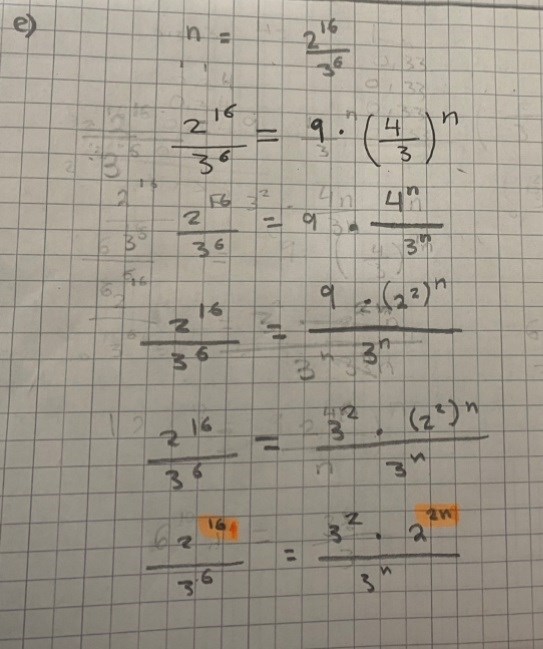 e)
n = 2^16/3^6
2^16/3^6 = 9 · (4/3)^n
2^16/3^6 = 9 · 4^n/3^n
2^16/3^6 = 9 · (2^2)^n/3^n
2^16/3^6 = 3^2 · (2^2)^n/3^n
2^16/3^6 = 3^2 · 2^2n/3^n